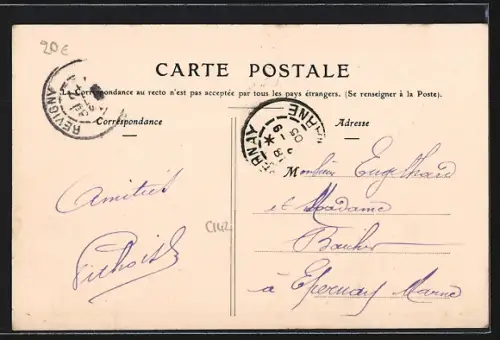 20€
CARTE POSTALE
La Correspondance au recto n'est pas acceptée par tous les pays étrangers. (Se renseigner à la Poste).
REVIGNY
Correspondance
Adresse
ERNAY
MARNE
Monsieur Engelhard
et Madame
à Epernay Marne
Amitiés
C1142